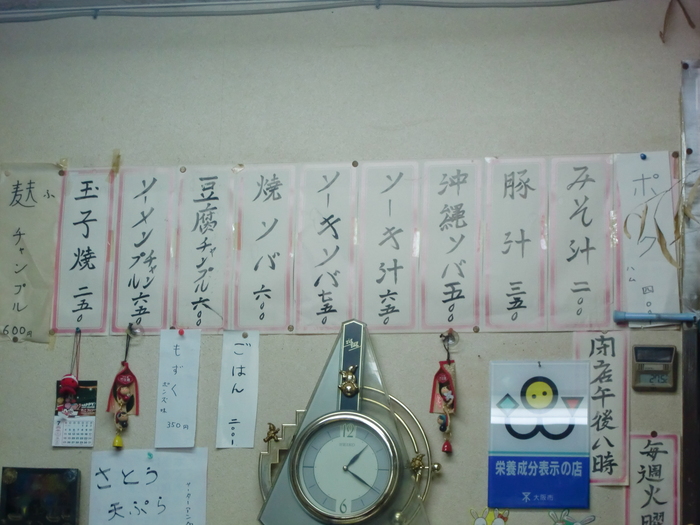 ポーク
ハム
四〇〇
みそ汁 二〇〇
豚汁 三五〇
沖縄ソバ 五〇〇
ソーキ汁 六五〇
ソーキソバ 七五〇
焼ソバ 六〇〇
豆腐チャンプル 六〇〇
ソーメンチャンプル 六五〇
玉子焼 二五〇
麸
ふ
チャンプル
600円
閉店午後八時
毎週火曜
ごはん 二〇〇
もずく
ポンズ味
350円
さとう
天ぷら
栄養成分表示の店
大阪市
12
6